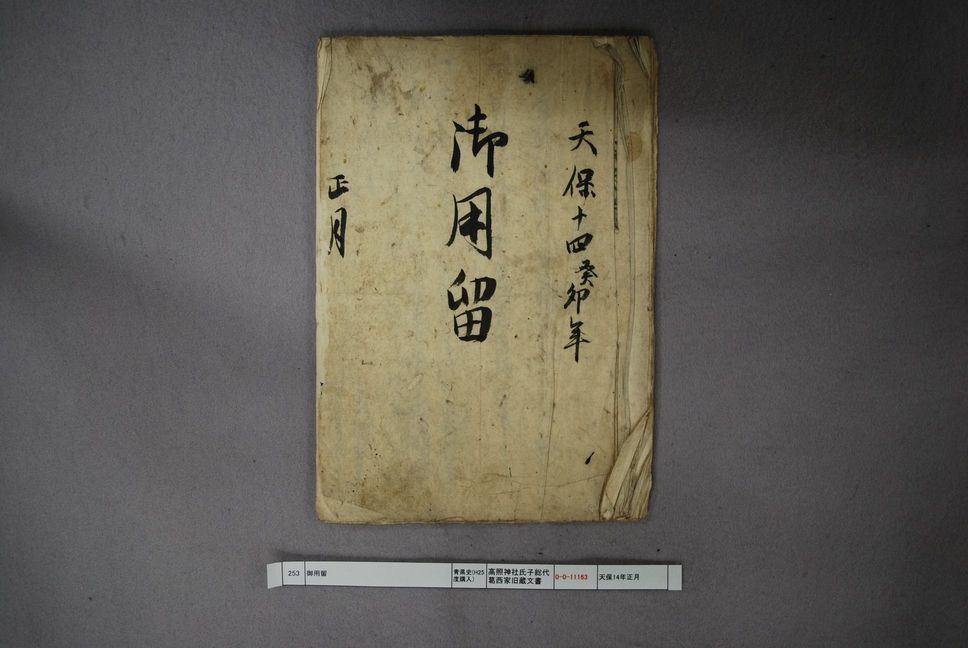 天保十四癸卯年
御用留
正月
253 御用留 青県史(H25度購入) 高照神社氏子総代葛西家旧蔵文書 0-0-11163 天保14年正月